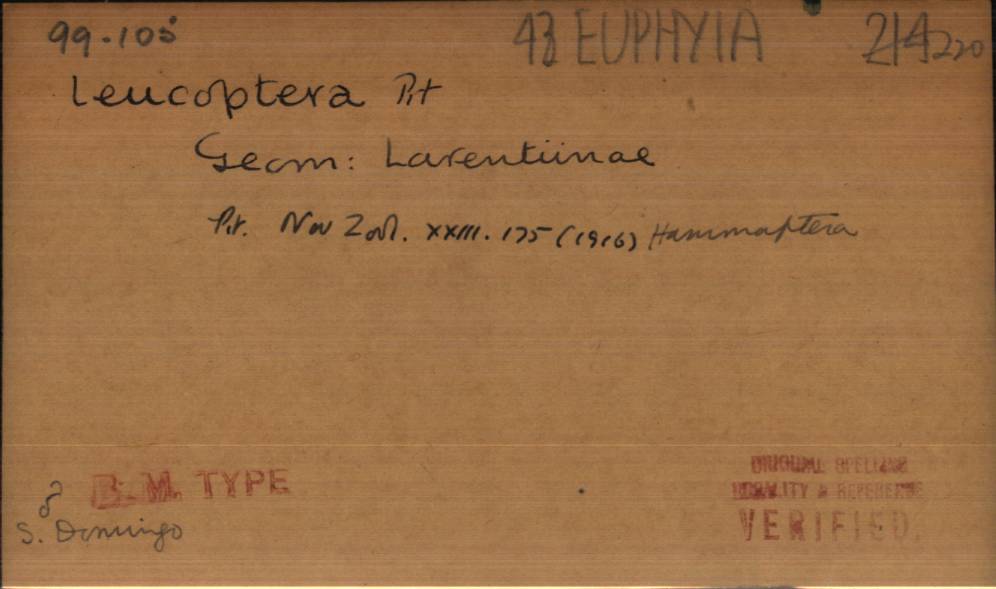 99.105 43 EUPHYIA 214 220
Leucoptera Prt
Geom: Larentiinae
Prt. Nov Zool. XXIII. 175 (1916) Hammaptera
B. M. TYPE
♂
S. Domingo
ORIGINAL SPELLING
LOCALITY & REFERENCE
VERIFIED.